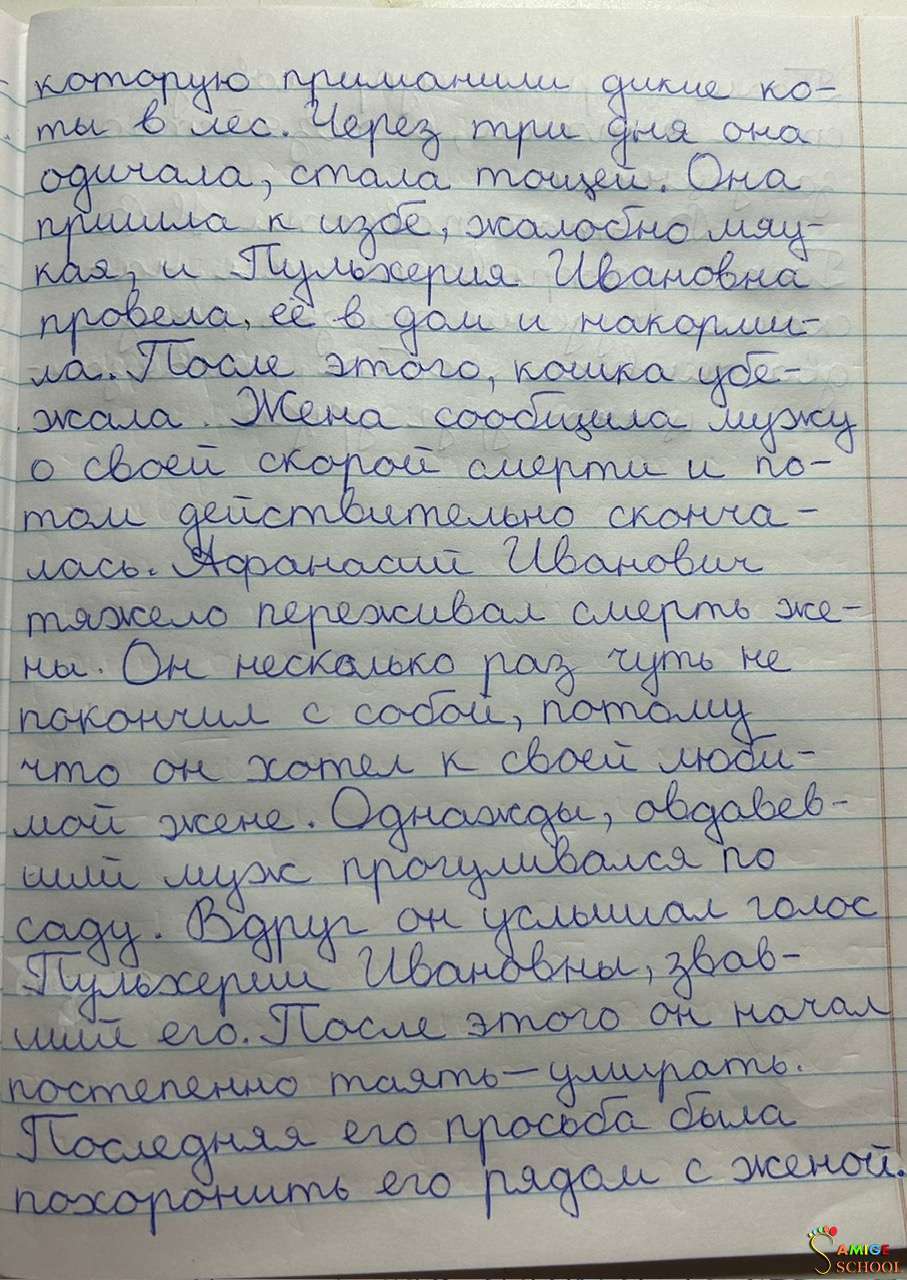 которую приманили дикие ко-
ты в лес. Через три дня она
одичала, стала тощей. Она
пришла к избе, жалобно мяу-
кая, и Пульхерия Ивановна
провела, её в дом и накорми-
ла. После этого, кошка убе-
жала. Жена сообщила мужу
о своей скорой смерти и по-
том действительно сконча-
лась. Афанасий Иванович
тяжело переживал смерть же-
ны. Он несколько раз чуть не
покончил с собой, потому
что он хотел к своей люби-
мой жене. Однажды, овдавев-
ший муж прогуливался по
саду. Вдруг он услышал голос
Пульхерии Ивановны, звав-
ший его. После этого он начал
постепенно таять – умирать.
Последняя его просьба была
похоронить его рядом с женой.
SAMIGE
SCHOOL